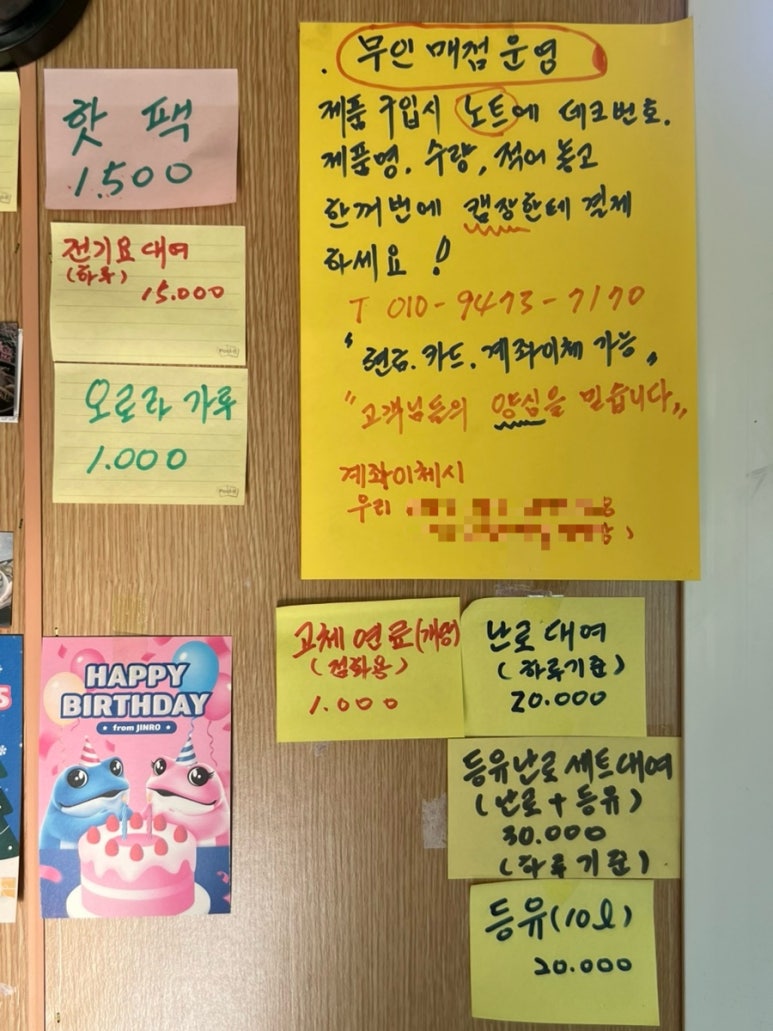 핫 팩
1.500
전기요 대여
(하루)
15.000
오로라 가루
1.000
HAPPY
BIRTHDAY
from JINRO
. 무인 매점 운영
제품 구입시 노트에 데크번호.
제품명. 수량, 적어 놓고
한꺼번에 캠장한테 결제
하세요 !
T 010-9473-7170
"현금. 카드. 계좌이체 가능"
"고객님들의 양심을 믿습니다"
계좌이체시
우리
고체연료(개당)
(점화용)
1.000
난로 대여
(하루기준)
20.000
등유난로 세트대여
(난로 + 등유)
30.000
(하루기준)
등유(10l)
20.000